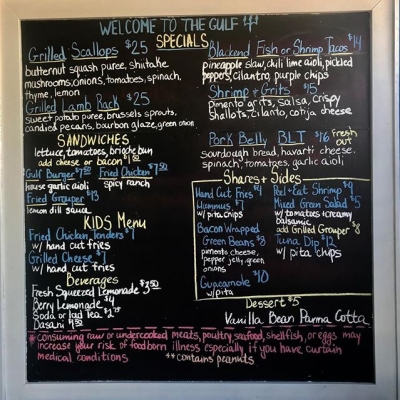 WELCOME TO THE GULF
SPECIALS
Grilled Scallops $25
butternut squash puree, shiitake
mushrooms, onions, tomatoes, spinach,
thyme, lemon
Grilled Lamb Rack $25
sweet potato puree, brussels sprouts,
candied pecans, bourbon glaze, green onion
SANDWICHES
lettuce, tomatoes, brioche bun
add cheese or bacon $1.50
Gulf Burger $7.50 Fried Chicken $7.50
house garlic aioli spicy ranch
Fried Grouper $13
lemon dill sauce
KIDS Menu
Fried Chicken Tenders $7
w/ hand cut fries
Grilled Cheese $7
w/ hand cut fries
Beverages
Fresh Squeezed Lemonade $3.50
Berry Lemonade $4
Soda or Iced Tea
Dasani
Blackend Fish or Shrimp Tacos $14
pineapple slaw, chili lime aioli, pickled
peppers, cilantro, purple chips
Shrimp + Grits $15
Pimento grits, salsa, crispy
shallots, cilantro, cotija cheese
Pork Belly BLT $16 fresh out
sourdough bread, havarti cheese,
spinach, tomatoes, garlic aioli
Shares + Sides
Hand Cut Fries $4
Hummus $7
w/ pita chips
Bacon Wrapped
Green Beans $8
pimento cheese,
pepper jelly, green
onions
Guacamole $10
w/ pita
Peel + Eat Shrimp
Mixed Green Salad $5
w/ tomatoes + creamy
balsamic
add Grilled Grouper $8
Tuna Dip $12
w/ pita chips
Dessert $5
Vanilla Bean Panna Cotta
* consuming raw or undercooked meats, poultry, seafood, shellfish, or eggs may
increase your risk of foodborn illness especially if you have curtain
medical conditions ** contains peanuts